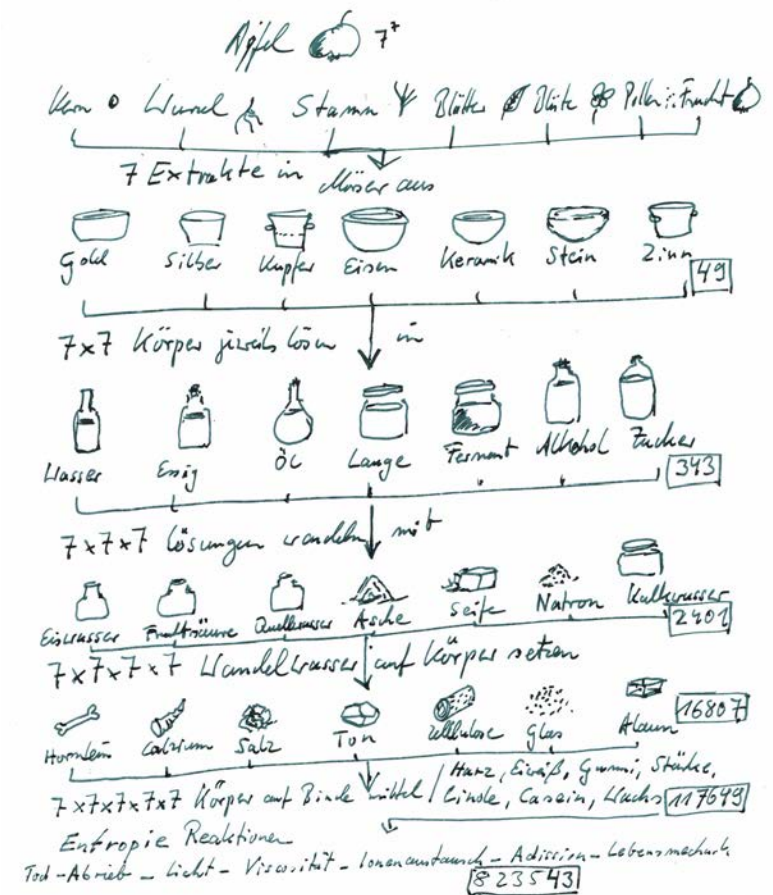 Apfel 7⁷
Kern Wurzel Stamm Blätter Blüte Pollen Frucht
7 Extrakte in Mörser aus
Gold Silber Kupfer Eisen Keramik Stein Zinn
49
7x7 Körper jeweils lösen in
Wasser Essig Öl Lauge Ferment Alkohol Zucker
343
7x7x7 Lösungen wandeln mit
Eiswasser Fruchtsäure Quellwasser Asche Seife Natron Kalkwasser
2401
7x7x7x7 Wandelwasser auf Körper setzen
Calzium Salz Ton Zellulose Glas Alaun
16807
7x7x7x7x7 Körper auf Bindemittel / Harz, Eiweiß, Gummi, Stärke,
Casein, Wachs 117649
Entropie Reaktionen
Tod - Abrieb - Licht - Viscosität - Ionenaustausch - Adission - Lebensmechanik
823543